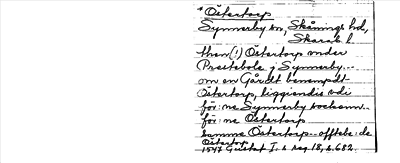 * Östertorp
Synnerby sn, Skånings hd,
Skarab. l.
then (!) Östertorp under
Prestebole j Synnerby...
om en Gårdt benempdt
Östertorp, liggiendis udi
för:ne Synnerby sockenn..
för:ne Östertorp
samme Östertorp.. offtebe:de
Östertorp
1547 Gustaf I:s reg 18, s. 682.